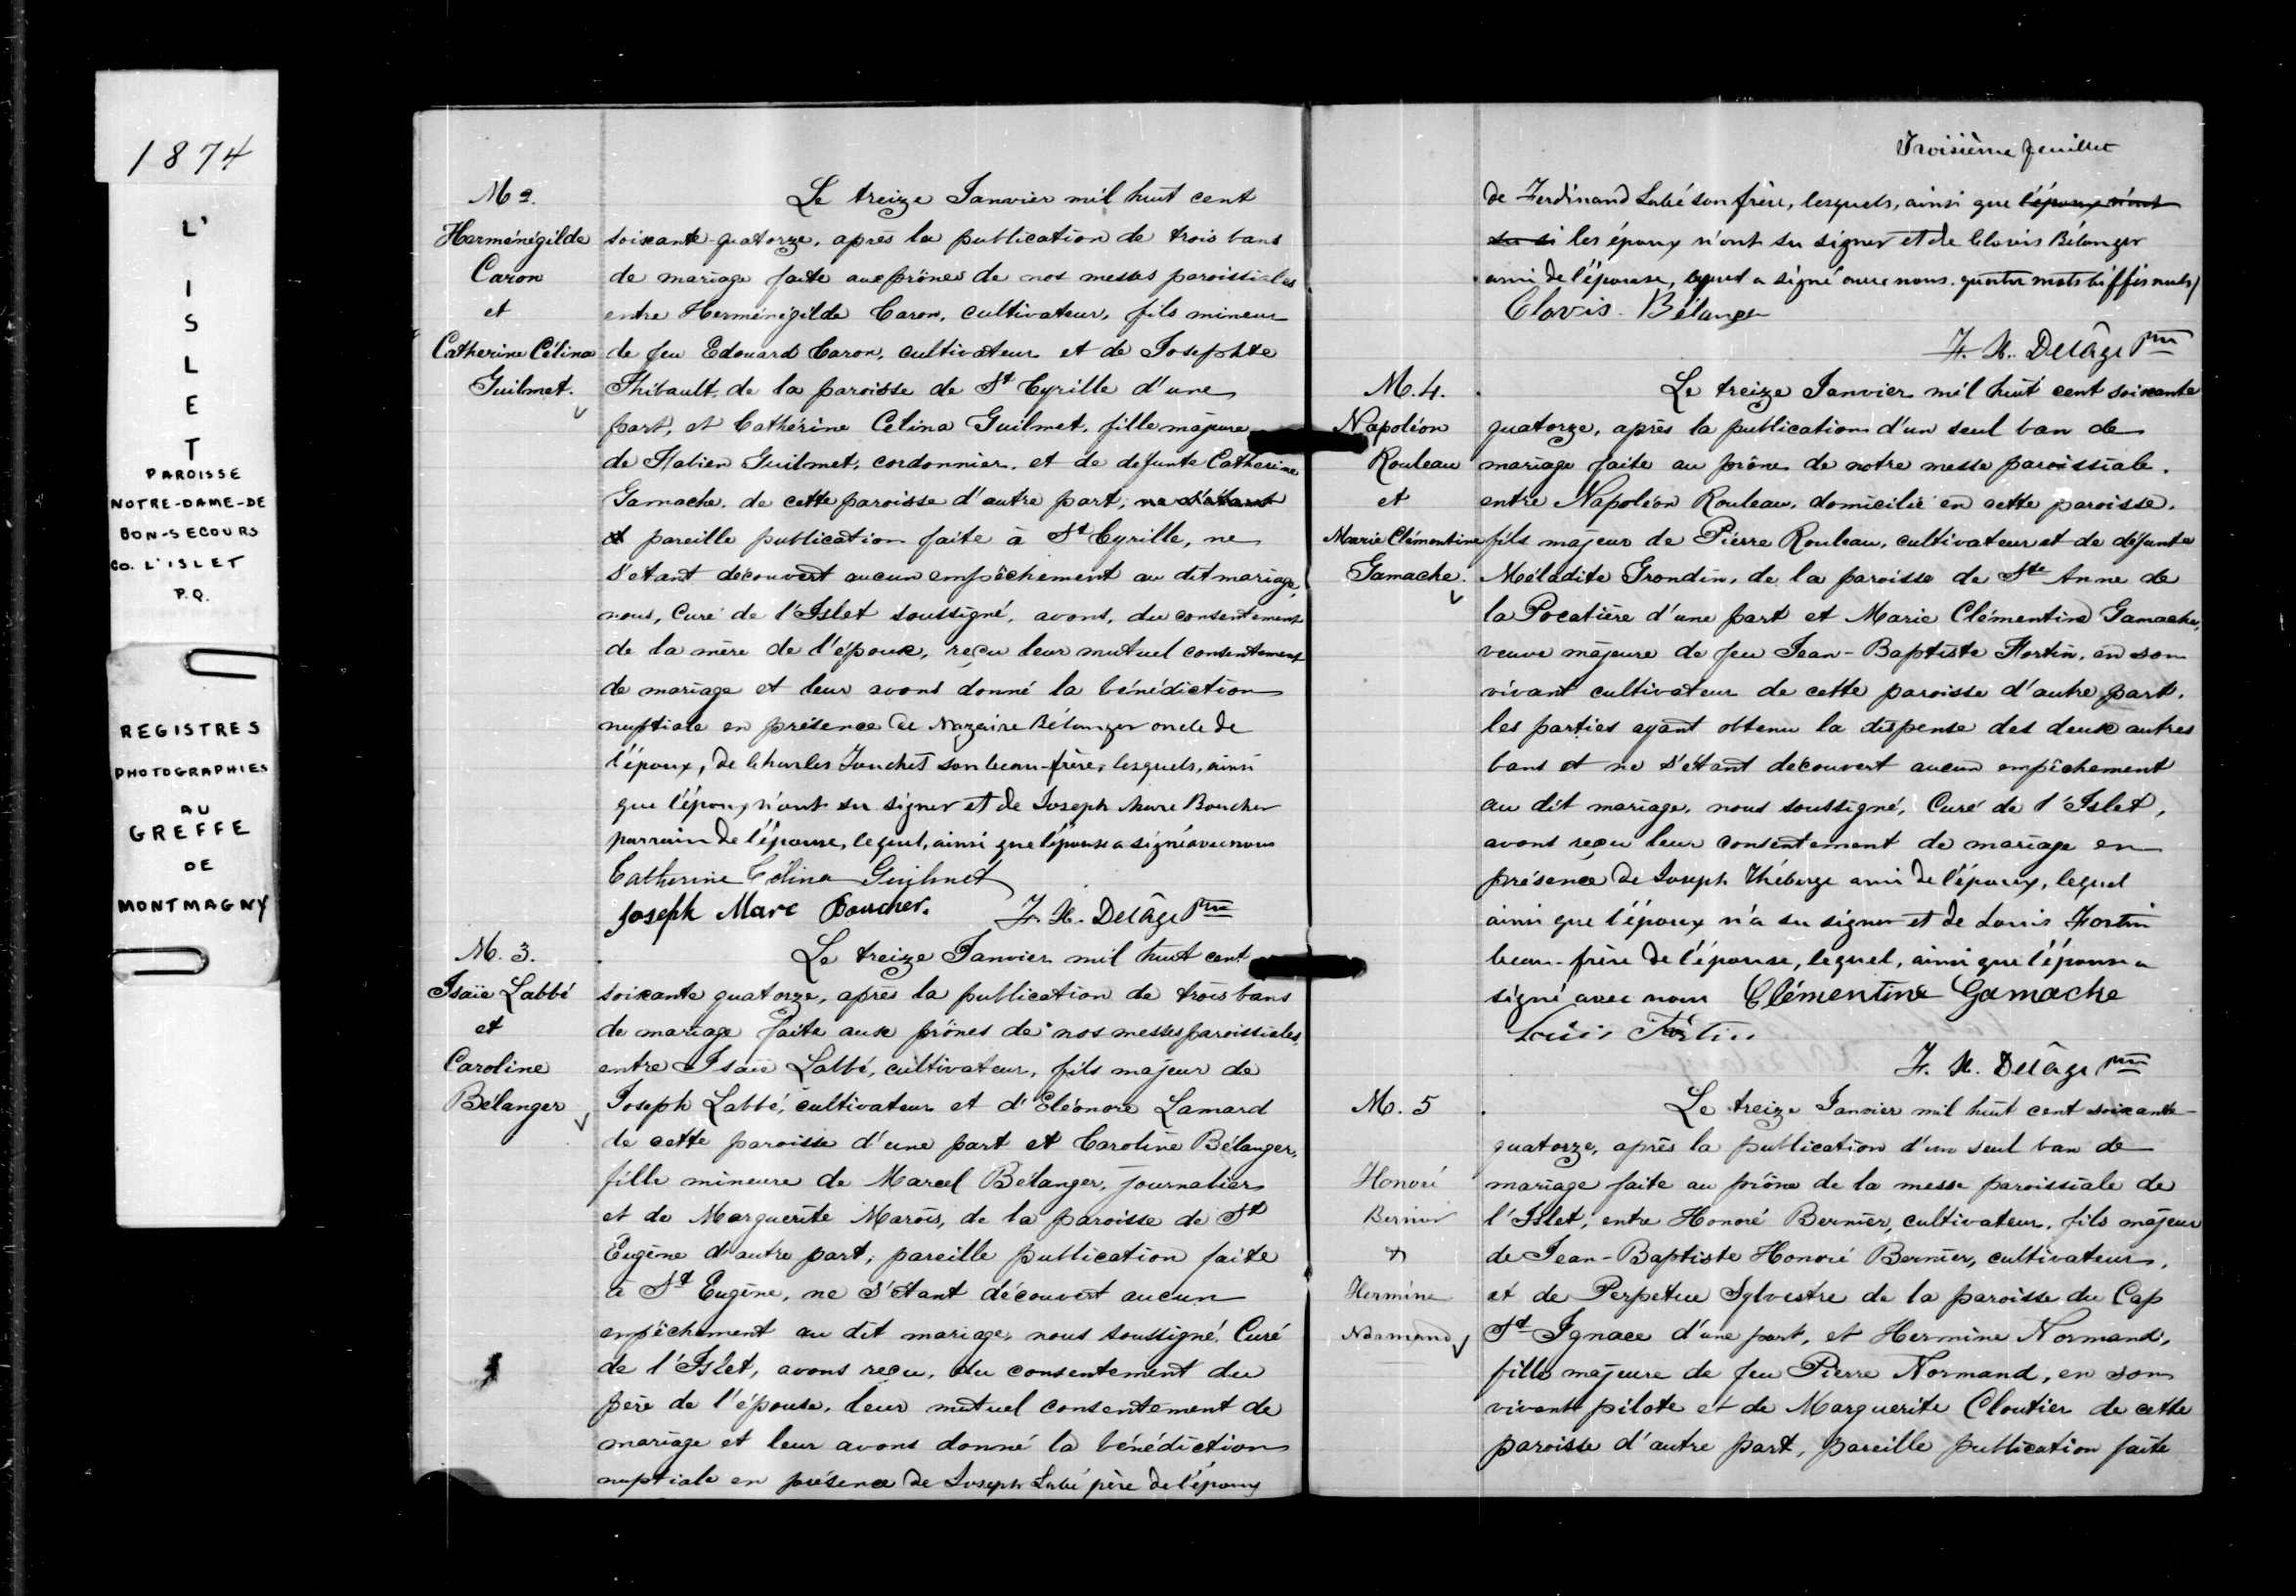 1874
L'
I
S
L
E
T
PAROISSE
NOTRE-DAME-DE
BON-SECOURS
CO. L'ISLET
P.Q.
REGISTRES
PHOTOGRAPHIES
AU
GREFFE
DE
MONTMAGNY
M 2.
Herménégilde
Caron
et
Catherine Célina
Guilmet.
Le treize Janvier mil huit cent
soixante-quatorze, après la publication de trois bans
de mariage faite aux prônes de nos messes paroissiales
entre Herménégilde Caron, cultivateur, fils mineur
de feu Edouard Caron, cultivateur et de Josephte
Thibault, de la paroisse de St Cyrille d'une
part, et Cathérine Célina Guilmet, fille majeure
de Fabien Guilmet, cordonnier, et de défunte Catherine
Gamache, de cette paroisse d'autre part, ne s'étant
et pareille publication faite à St Cyrille, ne
s'étant découvert aucun empêchement au dit mariage,
nous, Curé de l'Islet soussigné, avons, du consentement
de la mère de l'époux, reçu leur mutuel consentement
de mariage et leur avons donné la bénédiction
nuptiale en présence de Nazaire Bélanger oncle de
l'époux, de Charles Jonchet son beau-frère, lesquels, ainsi
que l'époux n'ont su signer et de Joseph Marc Boucher
parrain de l'épouse, lequel, ainsi que l'épouse a signé avec nous
Catherine Célina Guilmet
Joseph Marc Boucher. F. X. Delâge Ptre
M. 3.
Isaïe Labbé
et
Caroline
Bélanger
Le treize Janvier mil huit cent
soixante quatorze, après la publication de trois bans
de mariage faite aux prônes de nos messes paroissiales,
entre Isaïe Labbé, cultivateur, fils majeur de
Joseph Labbé, cultivateur et d'Eléonore Lamard
de cette paroisse d'une part et Caroline Bélanger,
fille mineure de Marcel Bélanger, journalier
et de Marguerite Marois, de la paroisse de St
Eugène d'autre part, pareille publication faite
à St Eugène, ne s'étant découvert aucun
empêchement au dit mariage, nous soussigné, Curé
de l'Islet, avons reçu, du consentement du
père de l'épouse, leur mutuel consentement de
mariage et leur avons donné la bénédiction
nuptiale en présence de Joseph Labé père de l'époux
Troisième feuillet
de Ferdinand Labé son frère, lesquels, ainsi que l'époux n'ont
su si les époux n'ont su signer et de Clovis Bélanger
ami de l'épouse, lequel a signé avec nous. quatre mots biffés nuls/
Clovis Bélanger
F. X. Delâge Ptre
M. 4.
Napoléon
Rouleau
et
Marie Clémentine
Gamache.
Le treize Janvier mil huit cent soixante
quatorze, après la publication d'un seul ban de
mariage faite au prône de notre messe paroissiale,
entre Napoléon Rouleau, domicilié en cette paroisse,
fils majeur de Pierre Rouleau, cultivateur et de défunte
Méladite Grondin, de la paroisse de Ste Anne de
la Pocatière d'une part et Marie Clémentine Gamache,
veuve majeure de feu Jean-Baptiste Fortin, en son
vivant cultivateur de cette paroisse d'autre part,
les parties ayant obtenu la dispense des deux autres
bans et ne s'étant découvert aucun empêchement
au dit mariage, nous soussigné, Curé de l'Islet,
avons reçu leur consentement de mariage en
présence de Joseph Théberge ami de l'époux, lequel
ainsi que l'époux n'a su signer et de Louis Fortin
beau-frère de l'épouse, lequel, ainsi que l'épouse a
signé avec nous Clémentine Gamache
Louis Fortin
F. X. Delâge Ptre
M. 5
Honoré
Bernier
&
Hermine
Normand
Le treize Janvier mil huit cent soixante-
quatorze, après la publication d'un seul ban de
mariage faite au prône de la messe paroissiale de
l'Islet, entre Honoré Bernier, cultivateur, fils majeur
de Jean-Baptiste Honoré Bernier, cultivateur,
et de Perpétue Sylvestre de la paroisse du Cap
St Ignace d'une part, et Hermine Normand,
fille majeure de feu Pierre Normand, en son
vivant pilote et de Marguerite Cloutier de cette
paroisse d'autre part, pareille publication faite